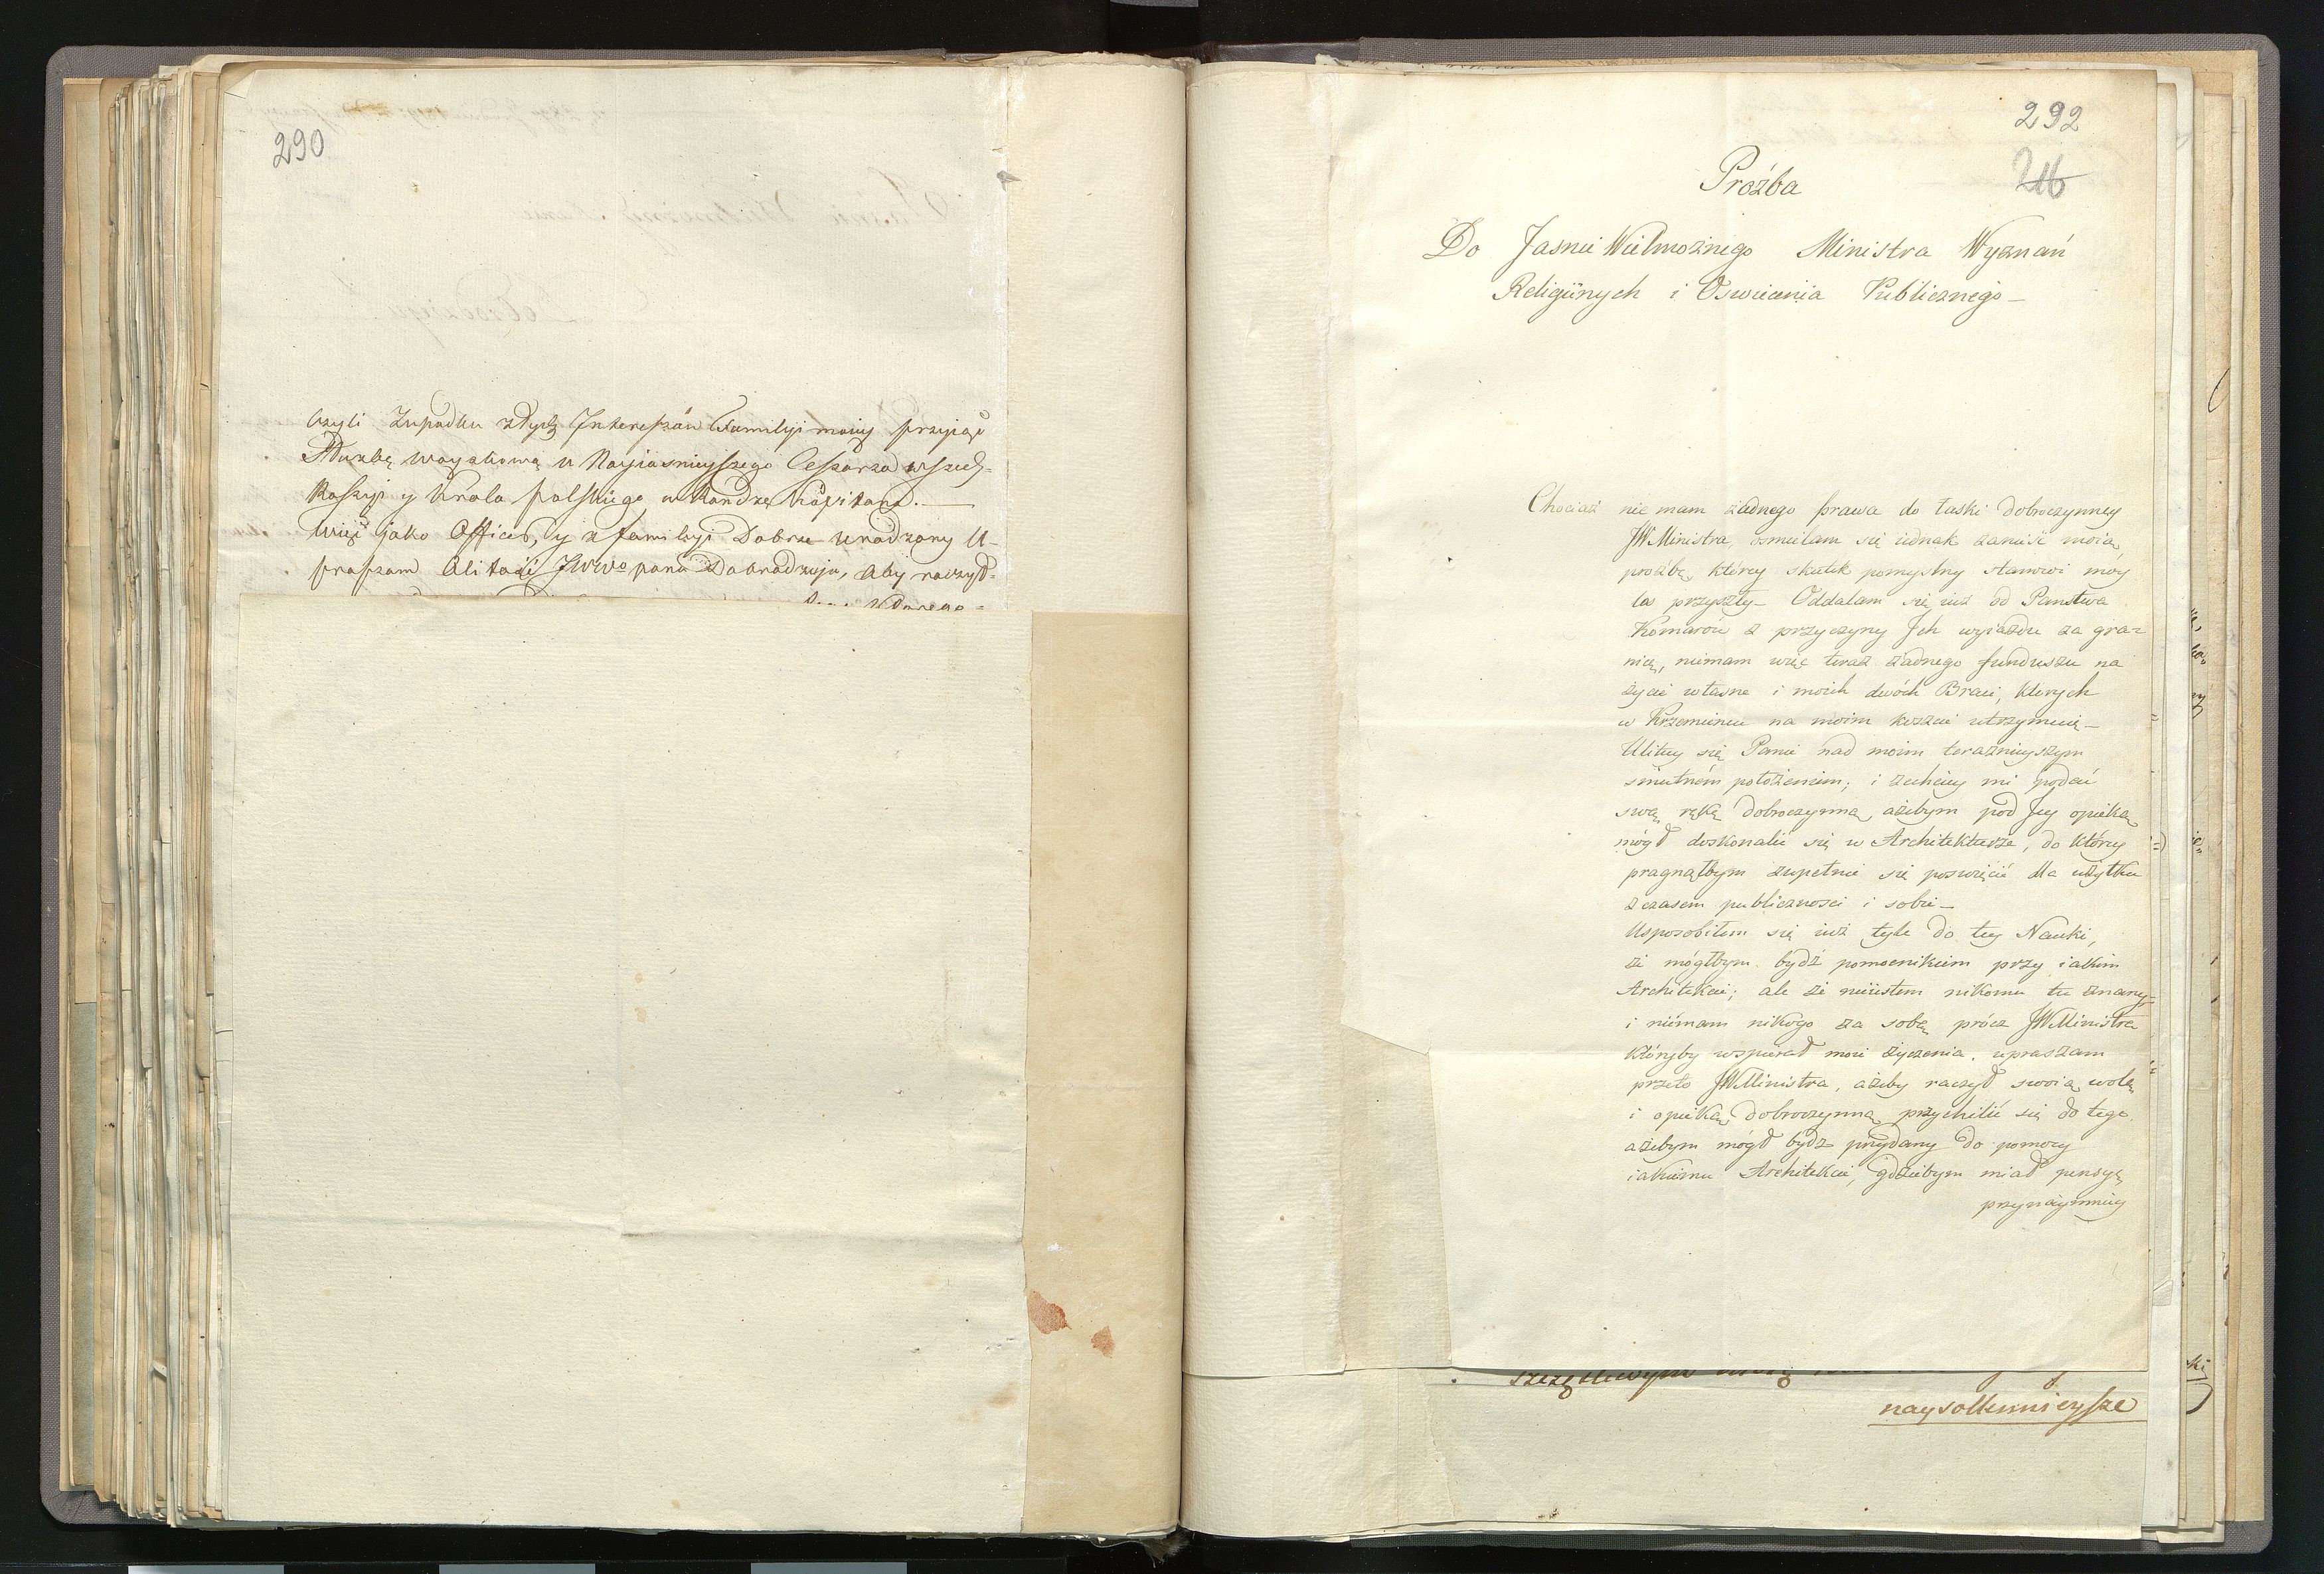 290
czyli Zupadku złych Interessów Familyi moiey przyjąć
Służbę woyskową u Nayiasnieyszego Cesarza wszech
Rossyi y Króla polskiego w Randze Kapitana.
więc jako Officer, y z familyi Dobrze urodzony U-
praszam JWWo pana Dobrodzieja, aby raczył
292
216
Prożba
Do Jasnie Wielmożnego Ministra Wyznań
Religiinych i Oswiecenia Publicznego —
Chociaż nie mam żadnego prawa do łaski dobroczynney
JWMinistra, osmielam się iednak zanieść moią
prożbę, którey skutek pomyslny stanowi moy
los przyszły — Oddalam się iuż od Państwa
Komarów z przyczyny Ich wyiazdu za gra=
nicę, niemam więc teraz żadnego funduszu na
życie własne i moich dwóch Braci, których
w Krzemiencu na moim koszcie utrzymuię —
Ulituy się Panie nad moim teraznieyszym
smutném położeniem; i zechciey mi podać
swą rękę dobroczynną, ażebym pod Jey opieką
mógł doskonalić się w Architekturze, do którey
pragnąłbym zupełnie się poswięcić dla użytku
z czasem publicznosci i sobie —
Usposobiłem się iuż tyle do tey Nauki,
że mógłbym bydź pomocnikiem przy iakim
Architekcie; ale że nieiestem nikomu tu znany=
i niémam nikogo za sobą prócz JWMinistra
któryby wspierał moie życzenia, upraszam
przeto JWMinistra, ażeby raczył swoią wolą
i opieką dobroczynną przychilić się do tego,
ażebym mógł bydź przydany do pomocy
iakiemu Architekcie, gdziebym miał pensyę
przynaymniey
nays